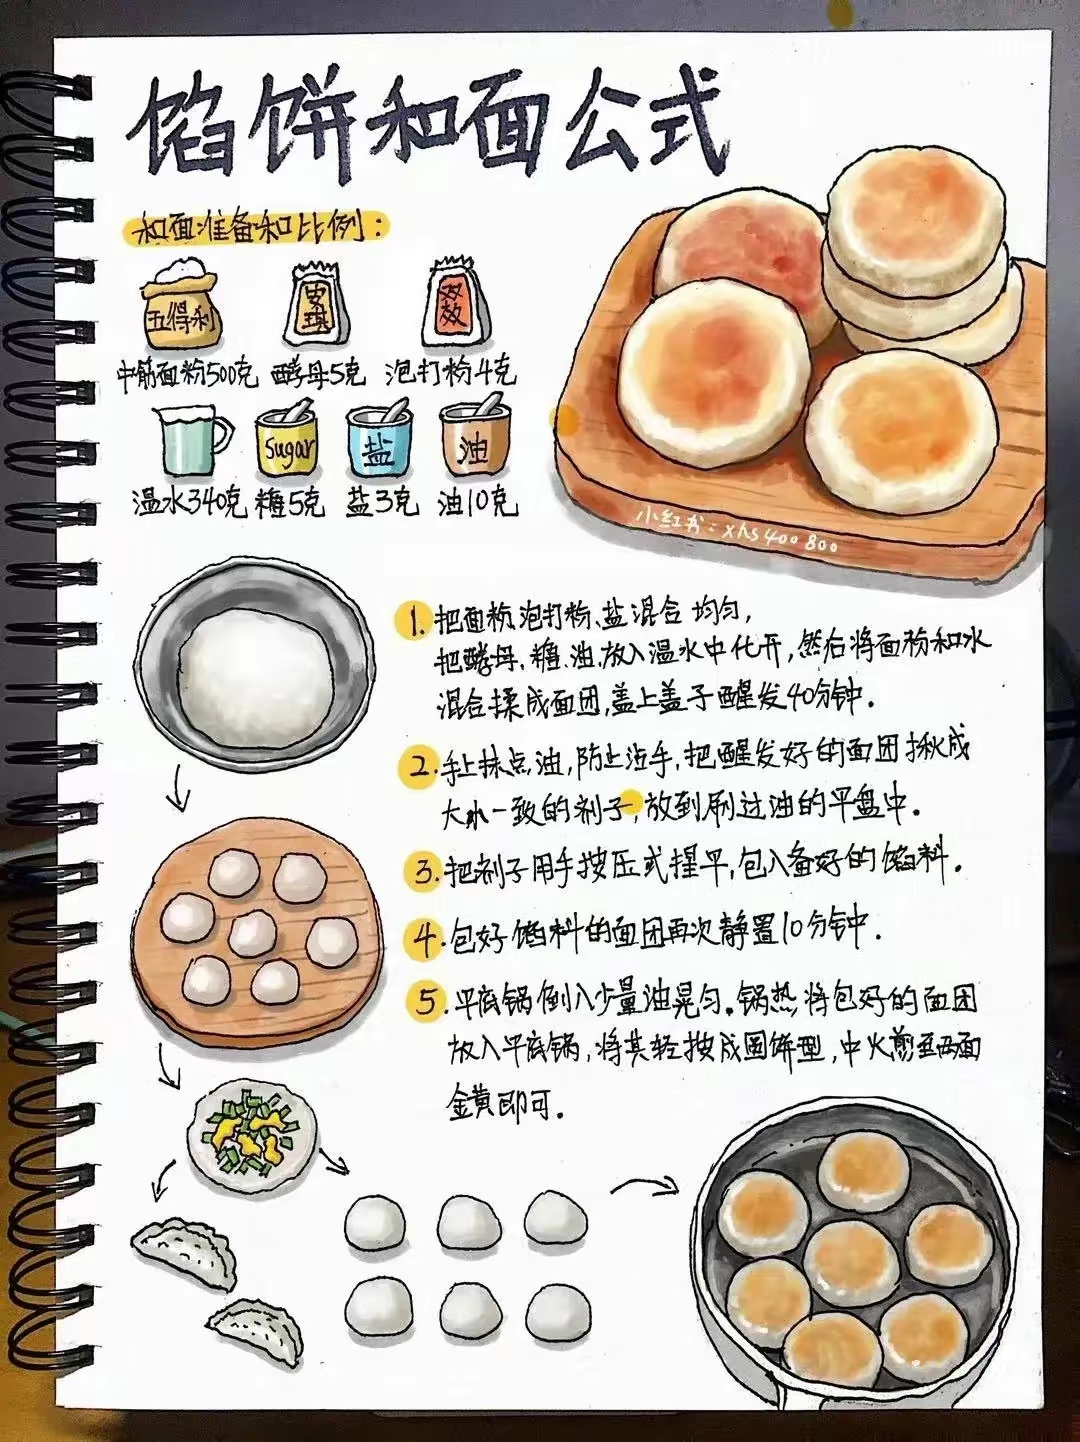 馅饼和面公式
和面准备和比例：
五得利
安琪
双效
中筋面粉500克 酵母5克 泡打粉4克
Sugar
盐
油
温水340克 糖5克 盐3克 油10克
小红书：xhs400800
1. 把面粉、泡打粉、盐混合均匀，
把酵母、糖、油、放入温水中化开，然后将面粉和水
混合揉成面团，盖上盖子醒发40分钟．
2. 手上抹点油，防止沾手，把醒发好的面团揪成
大小一致的剂子，放到刷过油的平盘中．
3. 把剂子用手按压式擀平，包入备好的馅料．
4. 包好馅料的面团再次静置10分钟．
5. 平底锅倒入少量油晃匀。锅热，将包好的面团
放入平底锅，将其轻按成圆饼型，中火煎至两面
金黄即可．